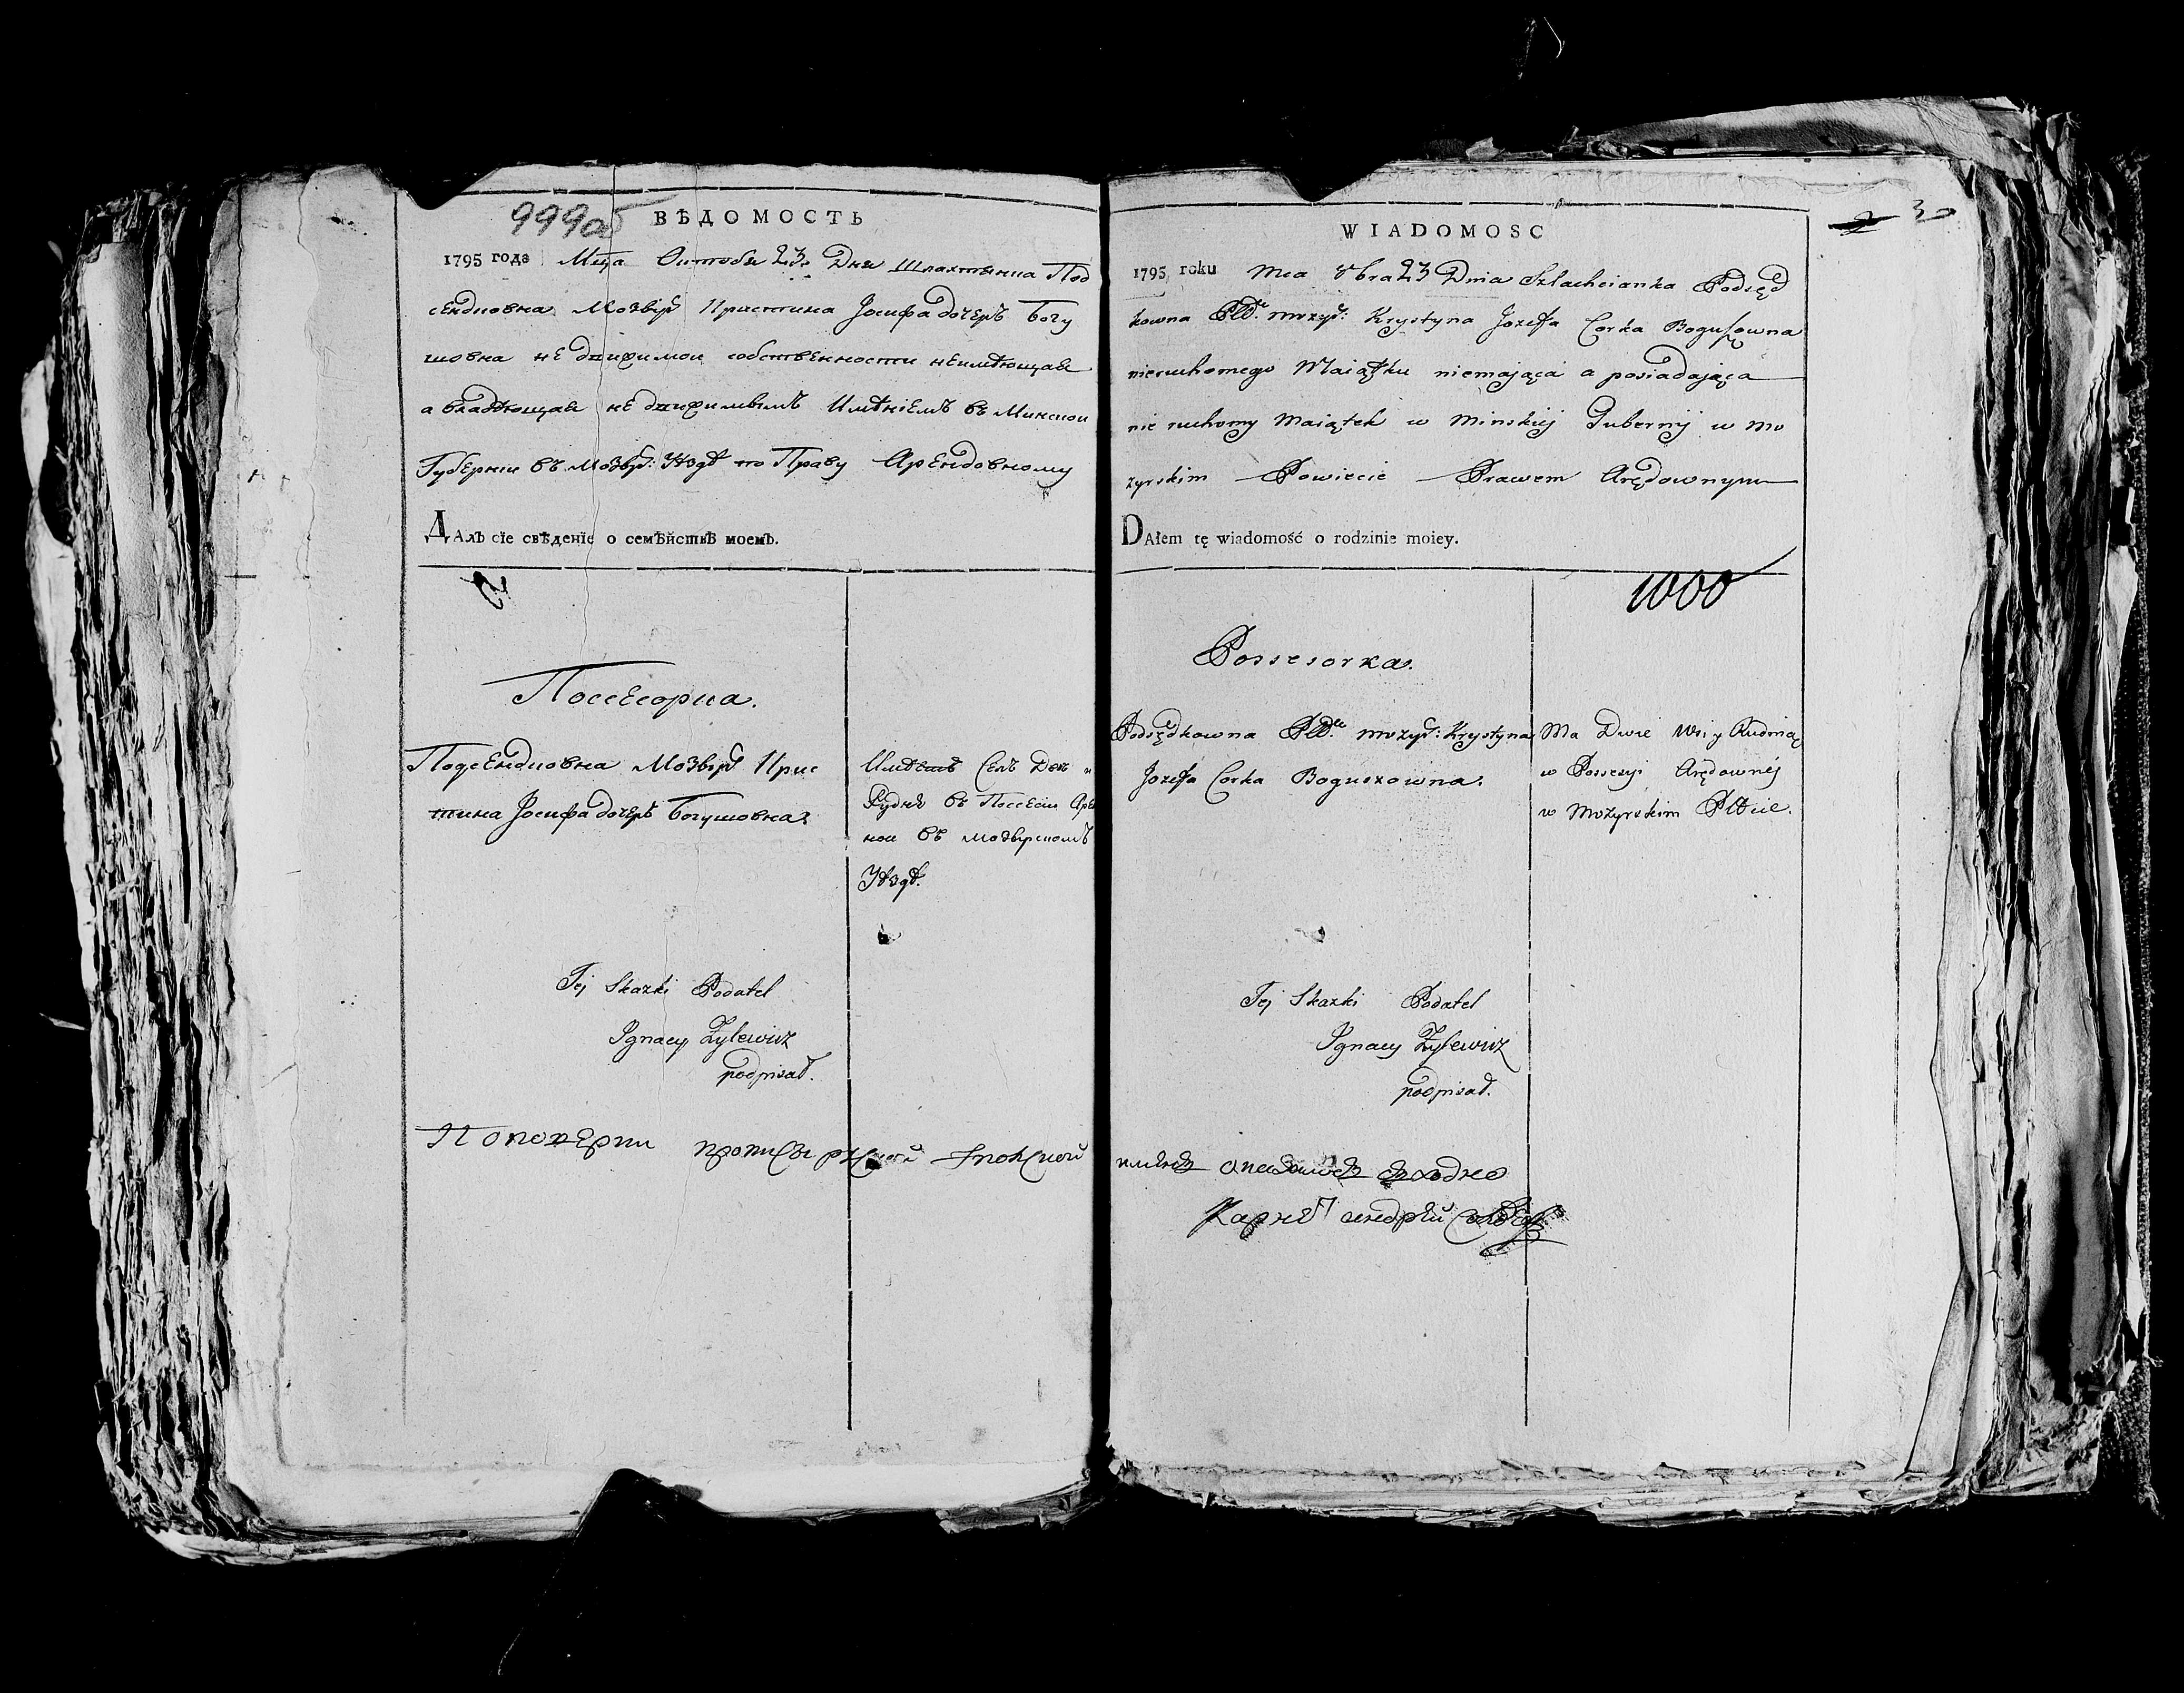 999об
ВѢДОМОСТЬ
1795 года Мца Октобя 23. Дня Шляхтянка Под
сендковна Мозыр Кристина Іосифа дочерь Богу
шовна не движимои собственности неимѣющая
а владѣющая не движимымъ Имѣніемъ въ Минскои
Губерніи въ Мозыр: Уѣздѣ по Праву Арендовному
ДАлъ сіе свѣденіе о семѣйствѣ моемъ.
2
Поссесорка.
Подсендковна Мозыр Крис
тина Іосифа дочерь Богушовна
Имѣетъ Селъ Двѣ и
Рудня въ Поссесіи Аре
нои въ мозырскомъ
Уѣздѣ.
Tej Skazki Podatel
Ignacy Żylewicz
podpisał.
WIADOMOSC
3
1795 roku Mca 8bra 23 Dnia Szlachcianka Podsęd
kowna Pttu mozyr: Krystyna Jozefa Corka Boguszowna
nieruchomego Maiątku niemająca a posiadająca
nie ruchomy Maiątek w Minskiej Gubernij w Mo
zyrskim Powiecie Prawem Arędownym
DAłem tę wiadomość o rodzinie moiey.
1000
Possesorka.
Podsędkowna Pttu mozyr: Krystyna
Jozefa Corka Boguszowna.
Ma Dwie Wsi y Rudnią
w Possesyi Arędownéj
w Mozyrskim Pttcie.
Tej Skazki Podatel
Ignacy Żylewicz
podpisał.